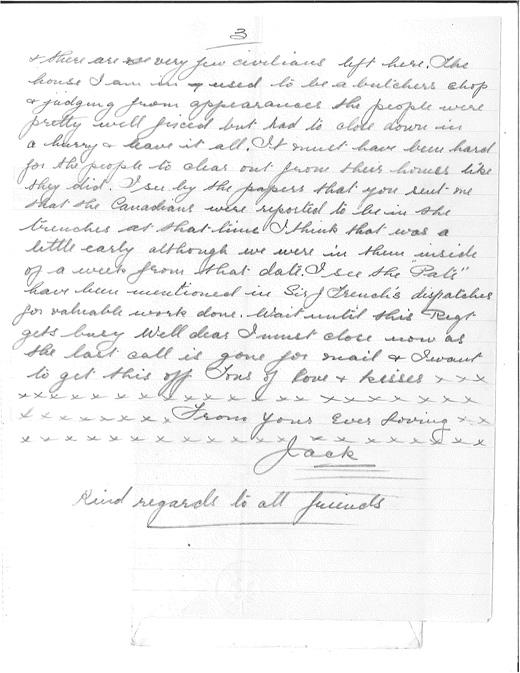 3
& there are very few civilians left here. The
house I am in used to be a butchers shop
& judging from appearances the people were
pretty well fixed but had to close down in
a hurry & leave it all. It must have been hard
for the people to clear out from their homes like
they did. I see by the papers that you sent me
that the Canadians were reported to be in the
trenches at that time I think that was a
little early although we were in them inside
of a week from that date. I see the "Pats"
have been mentioned in Sir J French's dispatches
for valuable work done. Wait until this Regt
gets busy Well dear I must close now as
the last call is gone for mail & I want
to get this off Tons of love & kisses x x x
x x x x x x x x x x x x x x x x x x x x
x x x x x x x x. From Your Ever Loving x x
x x x x x x x x x x x x x x x x x x x
Jack
Kind regards to all friends